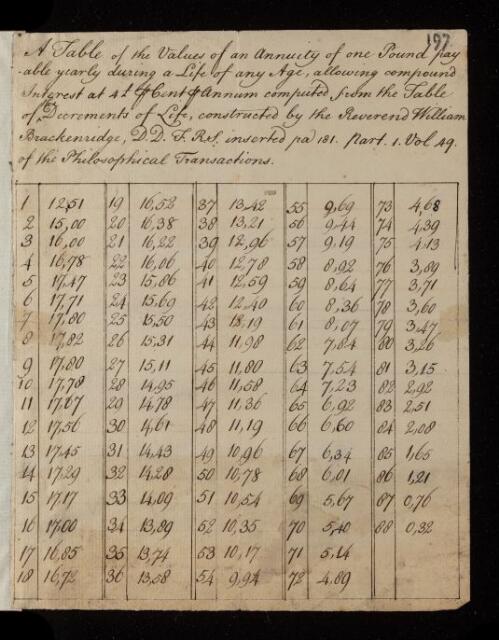 197
A Table of the Values of an Annuity of one Pound pay
-able yearly during a Life of any Age, allowing compound
Interest at 4½ ⅌ Cent ⅌ Annum computed from the Table
of Decrements of Life, constructed by the Reverend William
Brackenridge, D.D. F.R.S. inserted pa 181. Part. 1. Vol 49.
of the Philosophical Transactions.
1 12,51 19 16,52 37 13,42 55 9,69 73 4,68
2 15,00 20 16,38 38 13,21 56 9,44 74 4,39
3 16,00 21 16,22 39 12,96 57 9,19 75 4,13
4 16,78 22 16,06 40 12,78 58 8,92 76 3,89
5 17,47 23 15,86 41 12,59 59 8,64 77 3,71
6 17,71 24 15,69 42 12,40 60 8,36 78 3,60
7 17,80 25 15,50 43 12,19 61 8,07 79 3,47
8 17,82 26 15,31 44 11,98 62 7,84 80 3,26
9 17,80 27 15,11 45 11,80 63 7,54 81 3,15
10 17,78 28 14,95 46 11,58 64 7,23 82 2,92
11 17,67 29 14,78 47 11,36 65 6,92 83 2,51
12 17,56 30 14,61 48 11,19 66 6,60 84 2,08
13 17,45 31 14,43 49 10,96 67 6,34 85 1,65
14 17,29 32 14,28 50 10,78 68 6,01 86 1,21
15 17,17 33 14,09 51 10,54 69 5,67 87 0,76
16 17,00 34 13,89 52 10,35 70 5,40 88 0,32
17 16,85 35 13,74 53 10,17 71 5,14
18 16,72 36 13,58 54 9,94 72 4,89